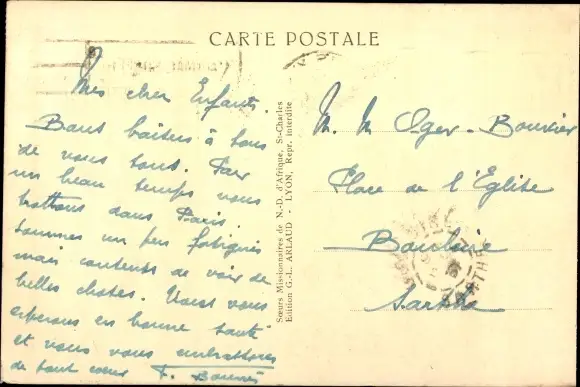 CARTE POSTALE
Mes cher Enfants
Bons baisers à tous
de vous tout. Par
un beau temps nous
trottons dans Paris.
sommes un peu fatigués
mais contents de voir de
belles choses. Vous
esperons en bonne santé
et nous vous embrassons
de tout cœur F.
Sœurs Missionnaires de N.-D. d'Afrique, St-Charles
Edition G.-L. ARLAUD - LYON, Repr. interdite
M. M Oger-Bouvier
Place de l'Eglise
Bouloire
Sarthe